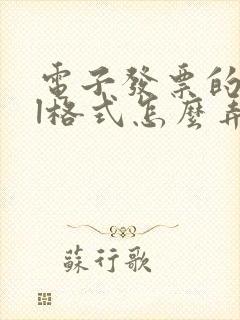 電子發票的
l格式怎麼弄
蘇行歌